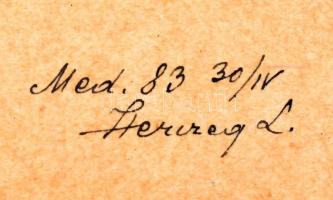 Med. 83 30/IV
Herzeg L.